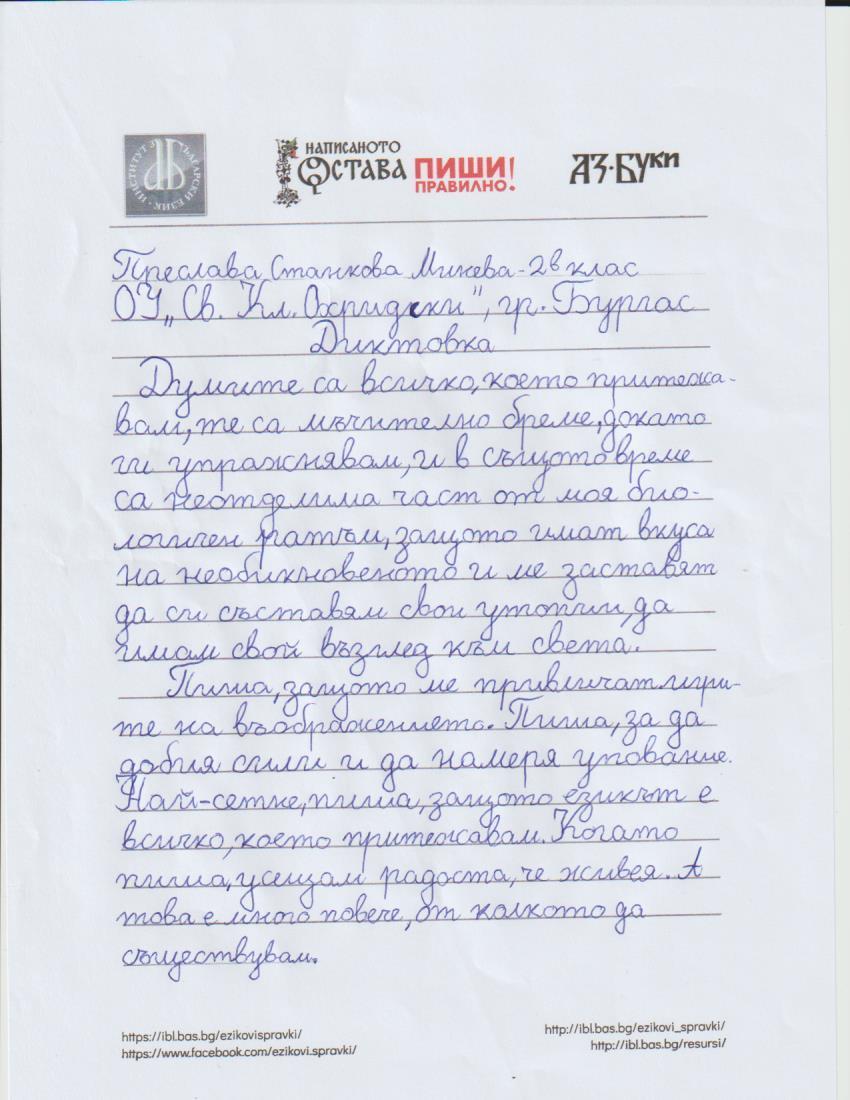 ИНСТИТУТ ЗА БЪЛГАРСКИ ЕЗИК
НАПИСАНОТО
ОСТАВА
ПИШИ
ПРАВИЛНО!
АЗ·БУКИ
Преслава Станкова Минева - 2в клас
ОУ „Св. Кл. Охридски", гр. Бургас
Диктовка
Думите са всичко, което притежа-
вам, те са мъчително бреме, докато
ги упражнявам, и в същото време
са неотделима част от моя био-
логичен ритъм, защото имат вкуса
на необикновеното и ме заставят
да си съставям свои утопии, да
имам свой възглед към света.
Пиша, защото ме привличат игри-
те на въображението. Пиша, за да
добия сили и да намеря упование.
Най-сетне, пиша, защото езикът е
всичко, което притежавам. Когато
пиша, усещам радоста, че живея. А
това е много повече, от колкото да
съществувам.
https://ibl.bas.bg/ezikovispravki/
https://www.facebook.com/ezikovi.spravki/
http://ibl.bas.bg/ezikovi_spravki/
http://ibl.bas.bg/resursi/